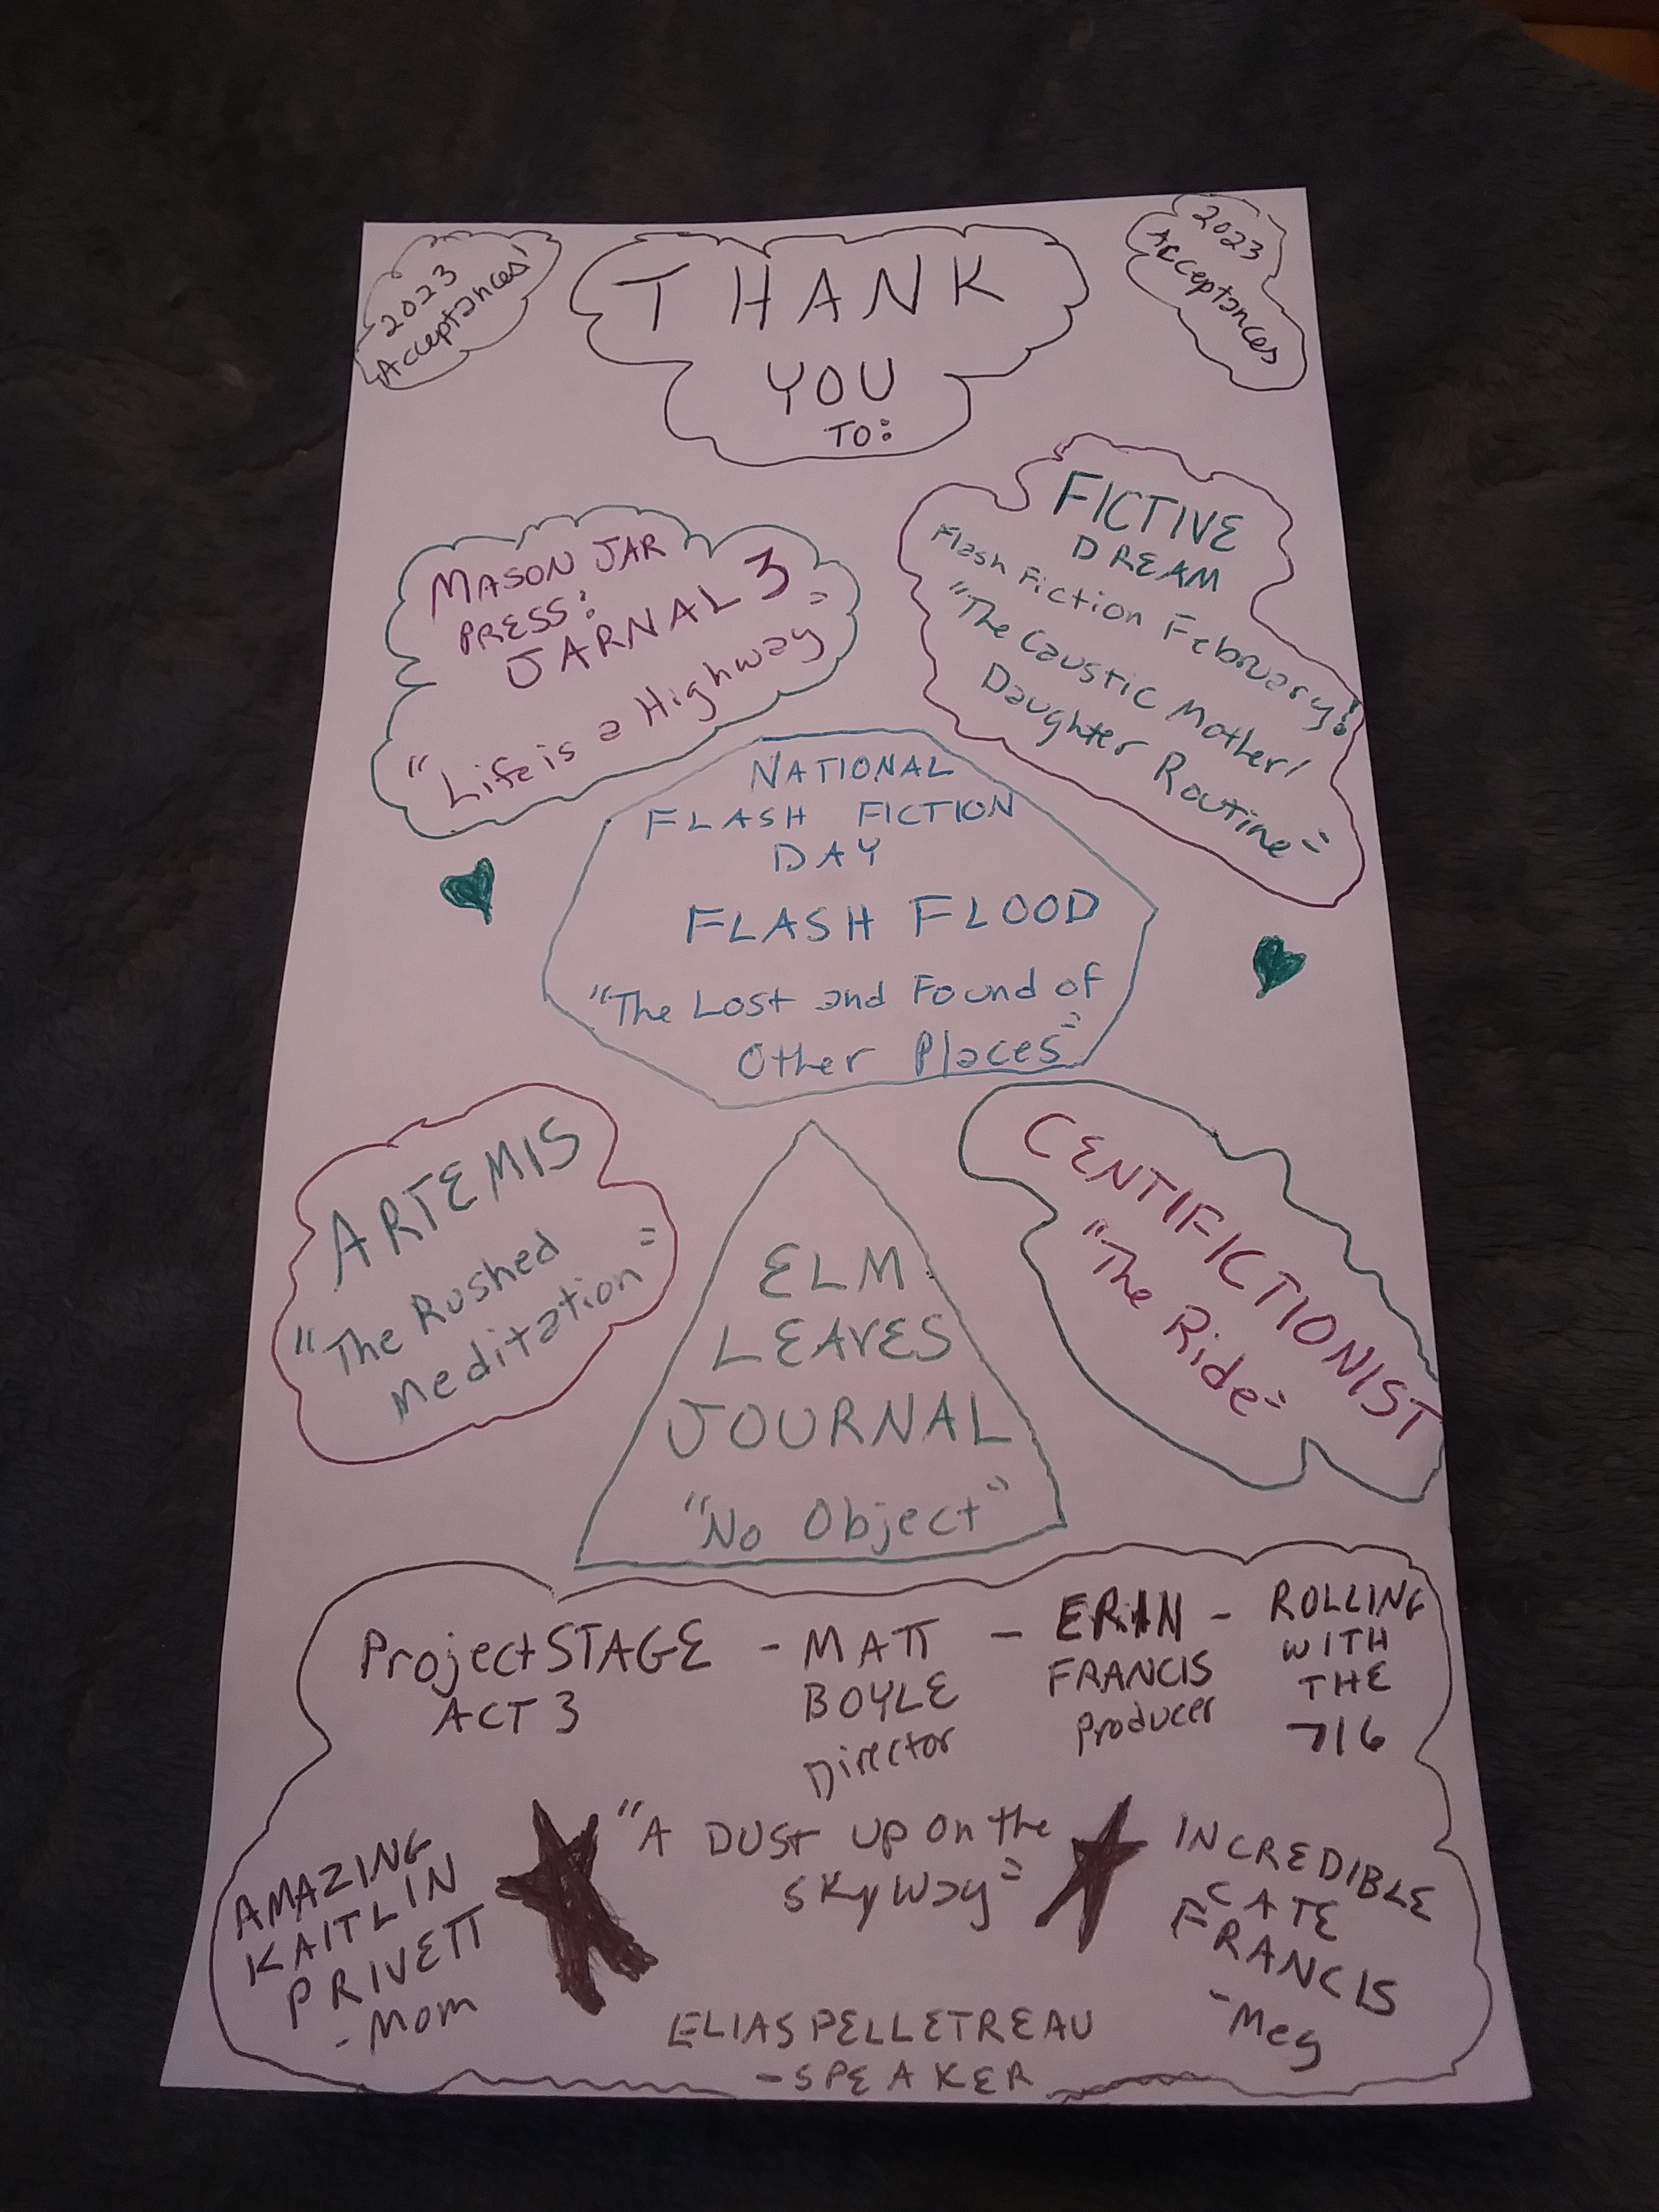 2023
Acceptances
THANK
YOU
TO:
2023
Acceptances
MASON JAR
PRESS:
JARNAL 3
"Life is a Highway"
FICTIVE
DREAM
Flash Fiction February!
"The Caustic Mother/
Daughter Routine"
NATIONAL
FLASH FICTION
DAY
FLASH FLOOD
"The Lost and Found of
Other Places"
ARTEMIS
"The Rushed
Meditation"
ELM
LEAVES
JOURNAL
"No Object"
CENTIFICTIONIST
"The Ride"
ProjectSTAGE
ACT 3
- MATT
BOYLE
Director
- ERIN
FRANCIS
Producer
- ROLLING
WITH
THE
716
AMAZING
KAITLIN
PRIVETT
- Mom
"A DUST UP ON the
SKYWAY"
INCREDIBLE
CATE
FRANCIS
- Meg
ELIAS PELLETREAU
- SPEAKER